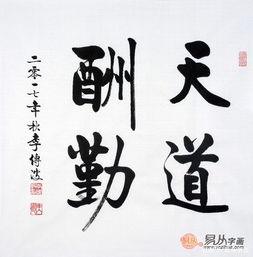 天道
酬勤
二零一七年秋李傅波
易从字画
www.yczihua.com